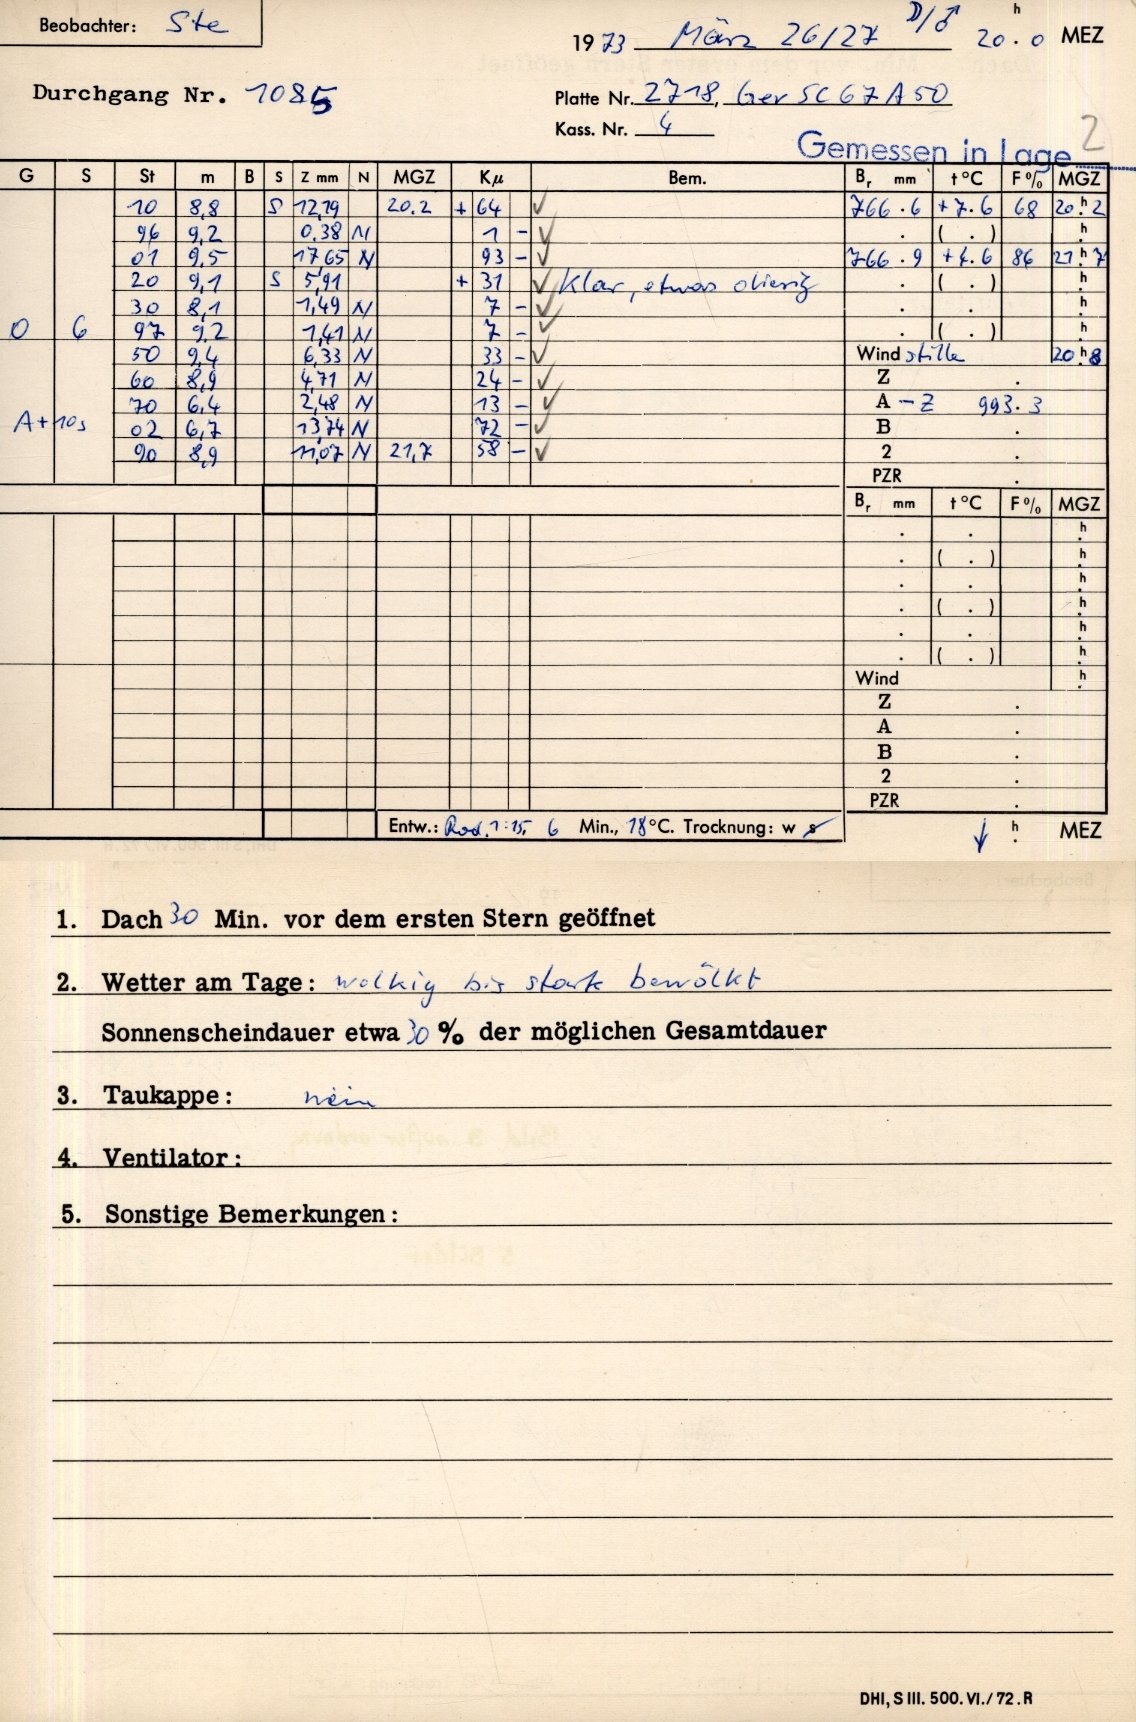 Beobachter: Ste
1973 März 26/27 D/♂ 20 h . 0 MEZ
Durchgang Nr. 1085
Platte Nr. 2718, Ger SC67A50
Kass. Nr. 4
Gemessen in Lage 2
G S St m B S Z mm N MGZ Kμ Bem. Br mm t°C F% MGZ
10 8,8 S 12,79 20.2 + 64 ✓ 766.6 +7.6 68 20h.2
96 9,2 0,38 N 1 – ✓ . ( . ) h.
01 9,5 17,65 N 93 – ✓ 766.9 +4.6 86 21h.7
20 9,1 S 5,91 + 31 ✓ Klar, etwas diesig . ( . ) h.
30 8,1 1,49 N 7 – ✓ . . h.
0 6 97 9,2 1,41 N 7 – ✓ . ( . ) h.
50 9,4 6,33 N 33 – ✓ Wind stille 20h.8
60 8,9 4,71 N 24 – ✓ Z .
70 6,4 2,48 N 13 – ✓ A – Z 993.3
A+10s 02 6,7 13,74 N 72 – ✓ B .
90 8,9 11,07 N 21,7 58 – ✓ 2 .
PZR .
Br mm t°C F% MGZ
. . h.
. ( . ) h.
. . h.
. ( . ) h.
. . h.
. ( . ) h.
Wind h.
Z .
A .
B .
2 .
PZR .
Entw.: Rod. 1:15, 6 Min., 18°C. Trocknung: w s
↓ h. MEZ
1. Dach 30 Min. vor dem ersten Stern geöffnet
2. Wetter am Tage: wolkig bis stark bewölkt
Sonnenscheindauer etwa 30 % der möglichen Gesamtdauer
3. Taukappe: nein
4. Ventilator:
5. Sonstige Bemerkungen:
DHI, S III. 500. VI./72. R